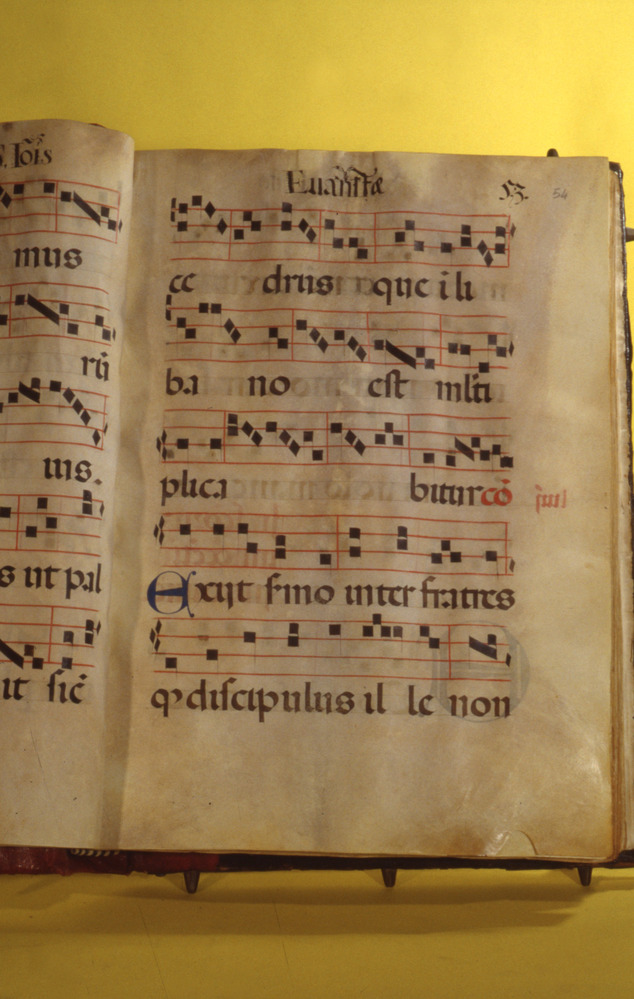 S. Ioīs
mus
rū
uis.
s ut pal
it sic̄
Euāństæ
53. 54
ce drus que i li
ba no est mlti
plica bitur cō
Exijt s̄mo inter fratres
qđ discipulus il le non